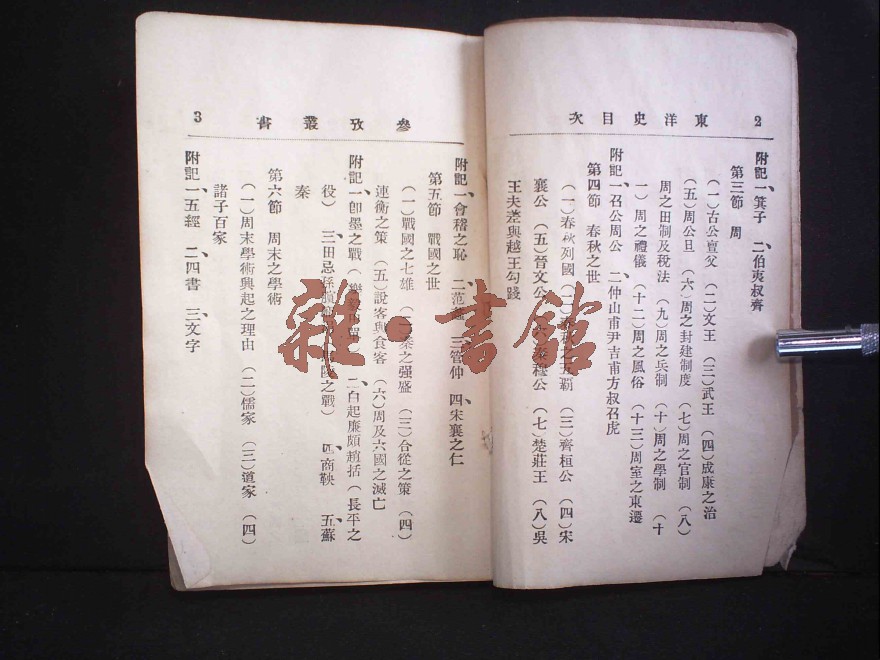 2 東洋史目次
附記一、箕子　二、伯夷叔齊
第三節　周
（一）古公亶父　（二）文王　（三）武王　（四）成康之治
（五）周公旦　（六）周之封建制度　（七）周之官制　（八）
周之田制及稅法　（九）周之兵制　（十）周之學制　（十
一）周之禮儀　（十二）周之風俗　（十三）周室之東遷
附記一、召公周公　二、仲山甫尹吉甫方叔召虎
第四節　春秋之世
（一）春秋列國　（二）春秋之五覇　（三）齊桓公　（四）宋
襄公　（五）晉文公　（六）秦穆公　（七）楚莊王　（八）吳
王夫差與越王勾踐
3 參攷叢書
附記一、會稽之恥　二、范　三、管仲　四、宋襄之仁
第五節　戰國之世
（一）戰國之七雄　（二）秦之强盛　（三）合從之策　（四）
連衡之策　（五）說客與食客　（六）周及六國之滅亡
附記一、卽墨之戰（樂毅田單）　二、白起廉頗趙括（長平之
役）　三、田忌孫　陵之戰）　四、商鞅　五、蘇
秦
第六節　周末之學術
（一）周末學術興起之理由　（二）儒家　（三）道家　（四）
諸子百家
附記一、五經　二、四書　三、文字
雜·書館